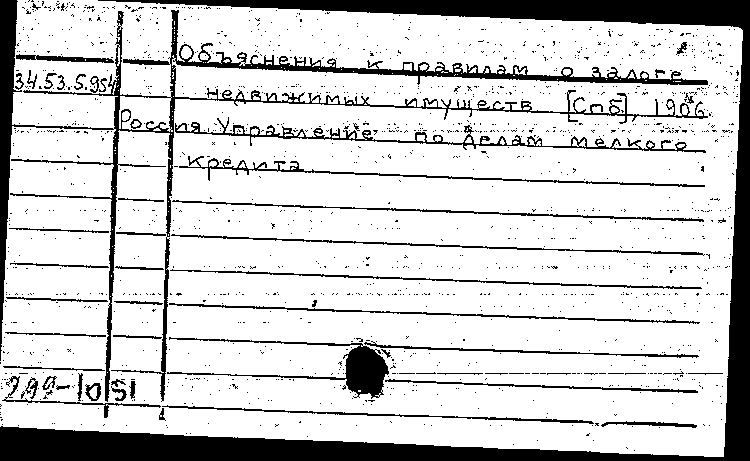 Объяснения к правилам о залоге
34.53.5.954
недвижимых имуществ [Спб], 1906
Россия. Управление по делам мелкого
кредита